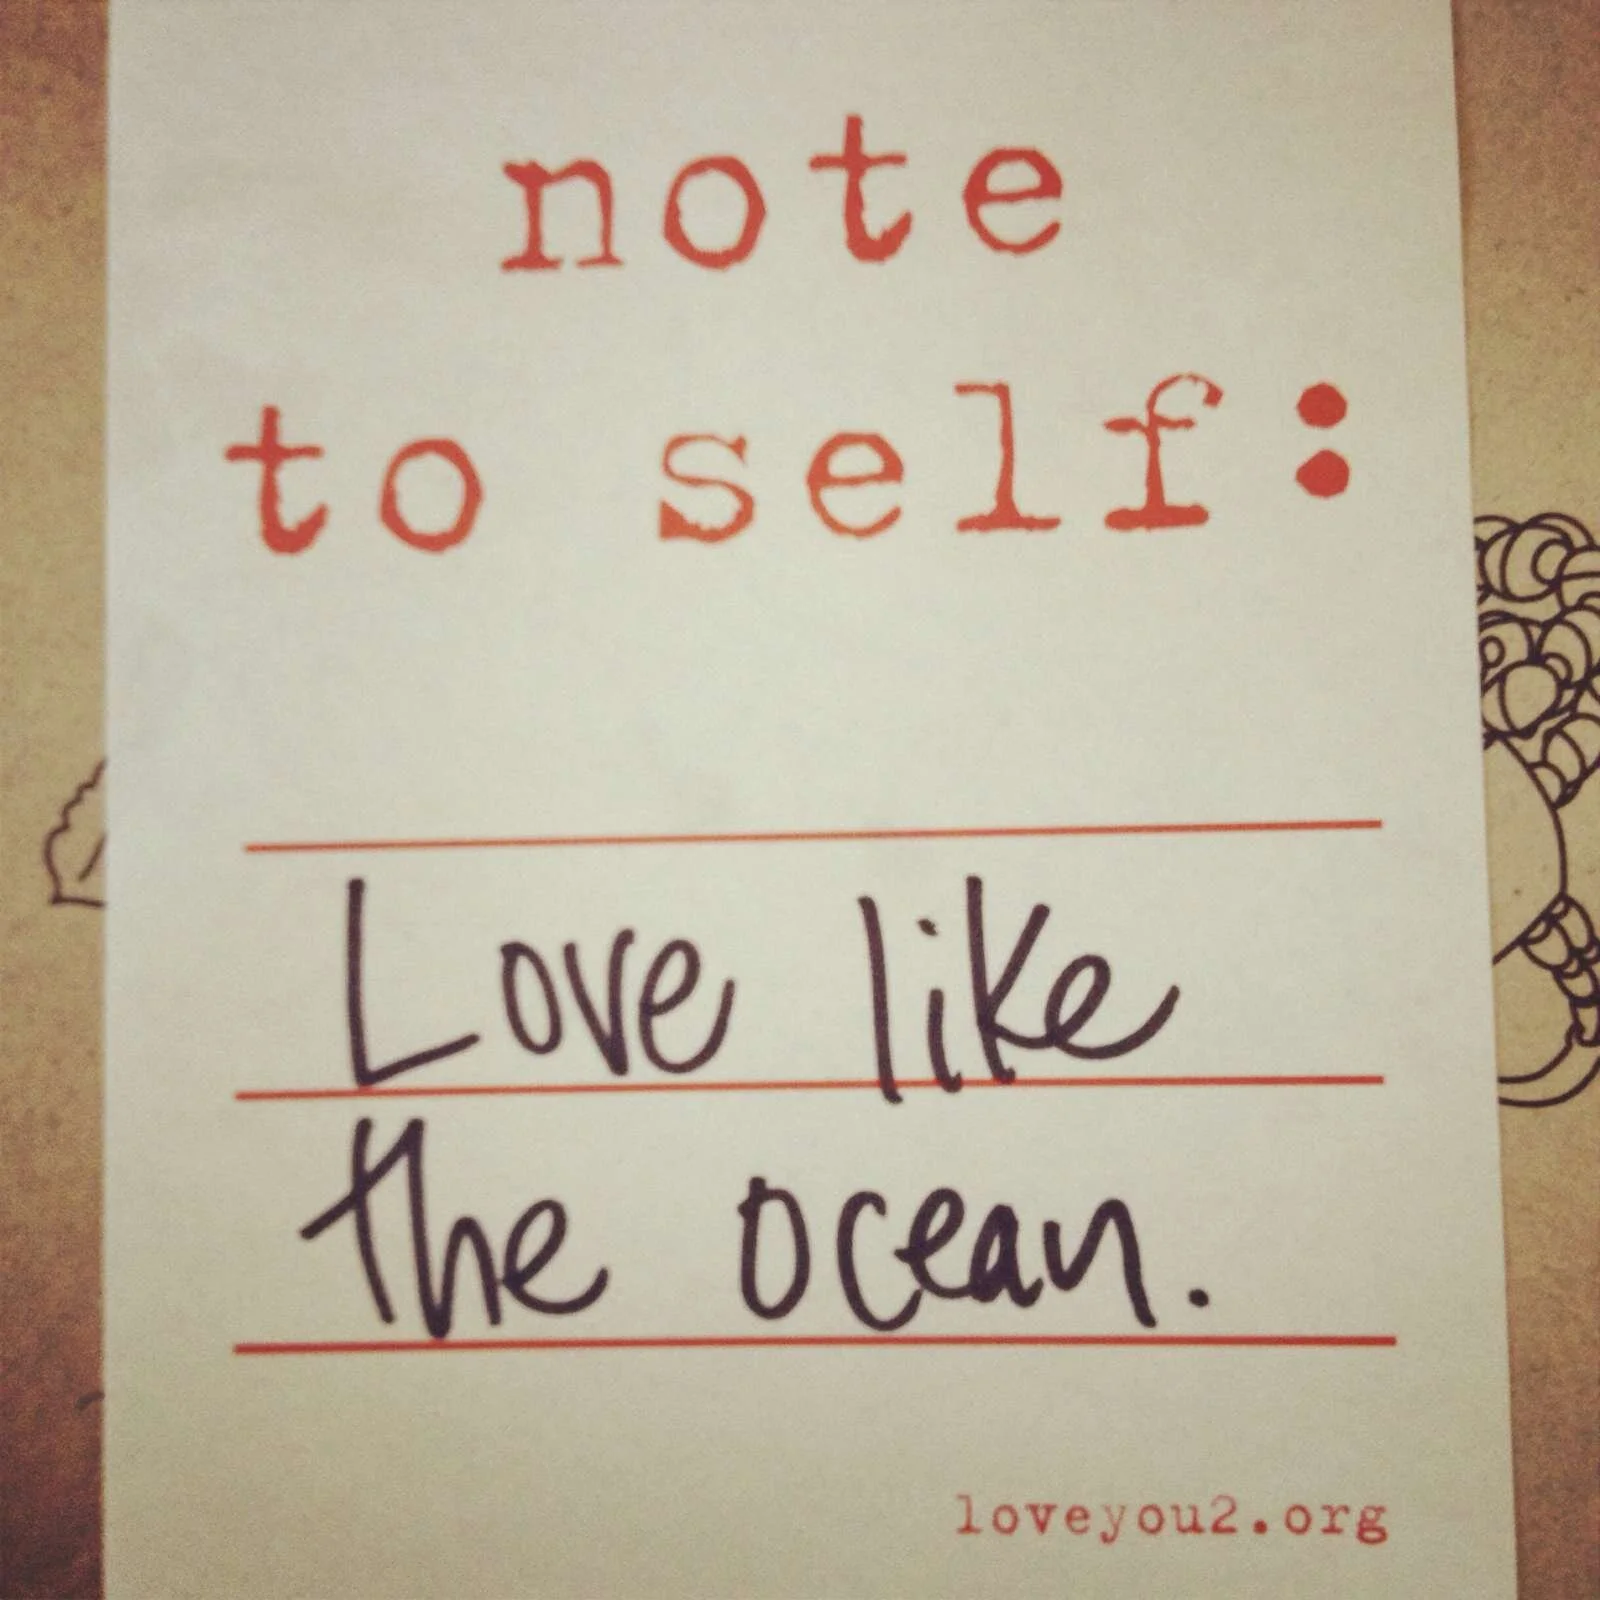 note
to self:
Love like
the ocean.
loveyou2.org